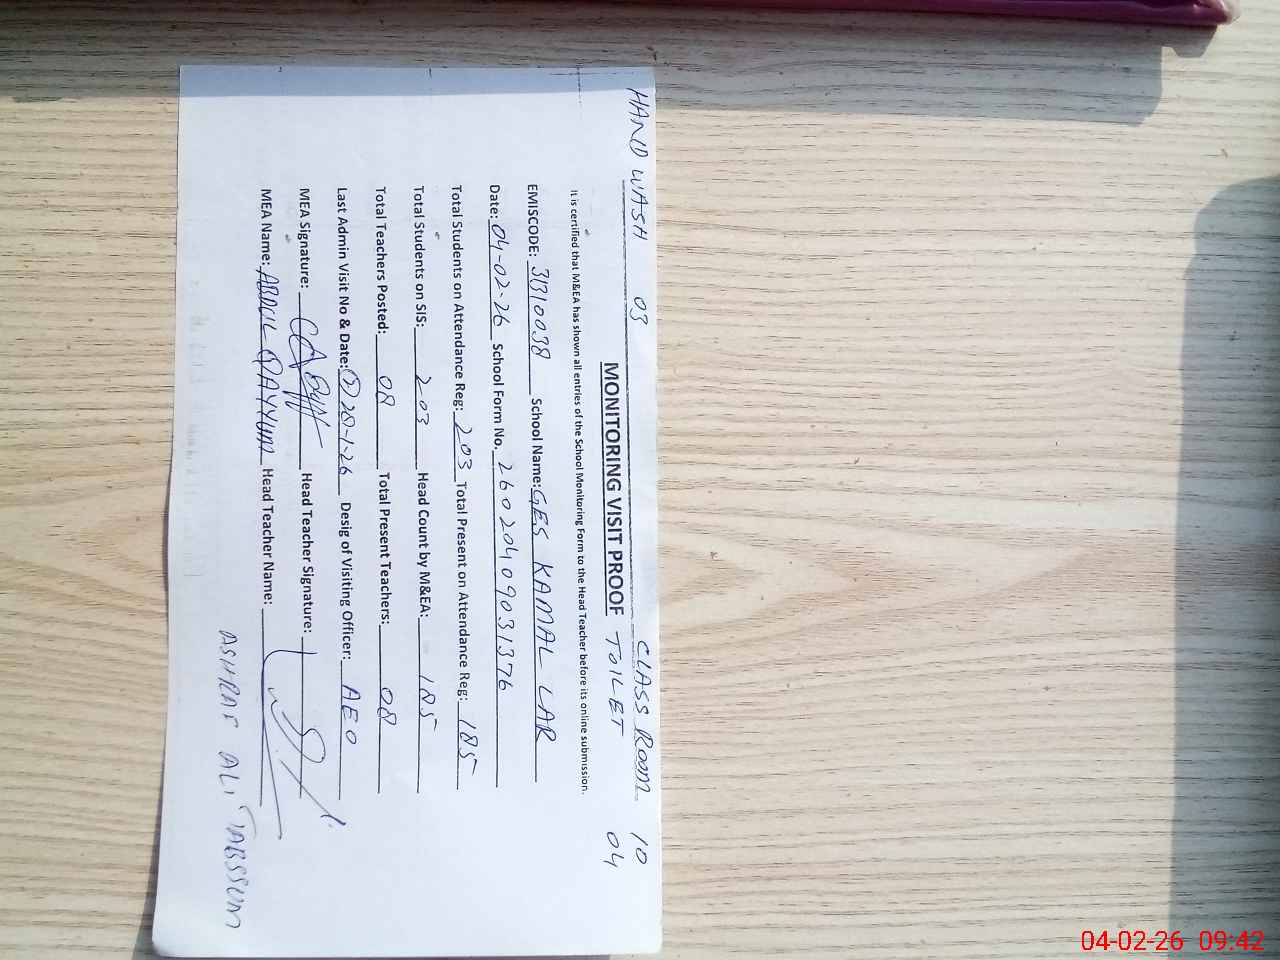 HAND WASH 03 CLASS ROOM 10
MONITORING VISIT PROOF TOILET 04
It is certified that M&EA has shown all entries of the School Monitoring Form to the Head Teacher before its online submission.
EMISCODE: 31310038 School Name: GES KAMAL LAR
Date: 04-02-26 School Form No. 26020409031376
Total Students on Attendance Reg: 203 Total Present on Attendance Reg: 185
Total Students on SIS: 203 Head Count by M&EA: 185
Total Teachers Posted: 08 Total Present Teachers: 08
Last Admin Visit No & Date: 2 28-1-26 Desig of Visiting Officer: AEO
MEA Signature: Head Teacher Signature:
MEA Name: ABDUL QAYYUM Head Teacher Name:
ASHRAF ALI TABSSUM
04-02-26 09:42